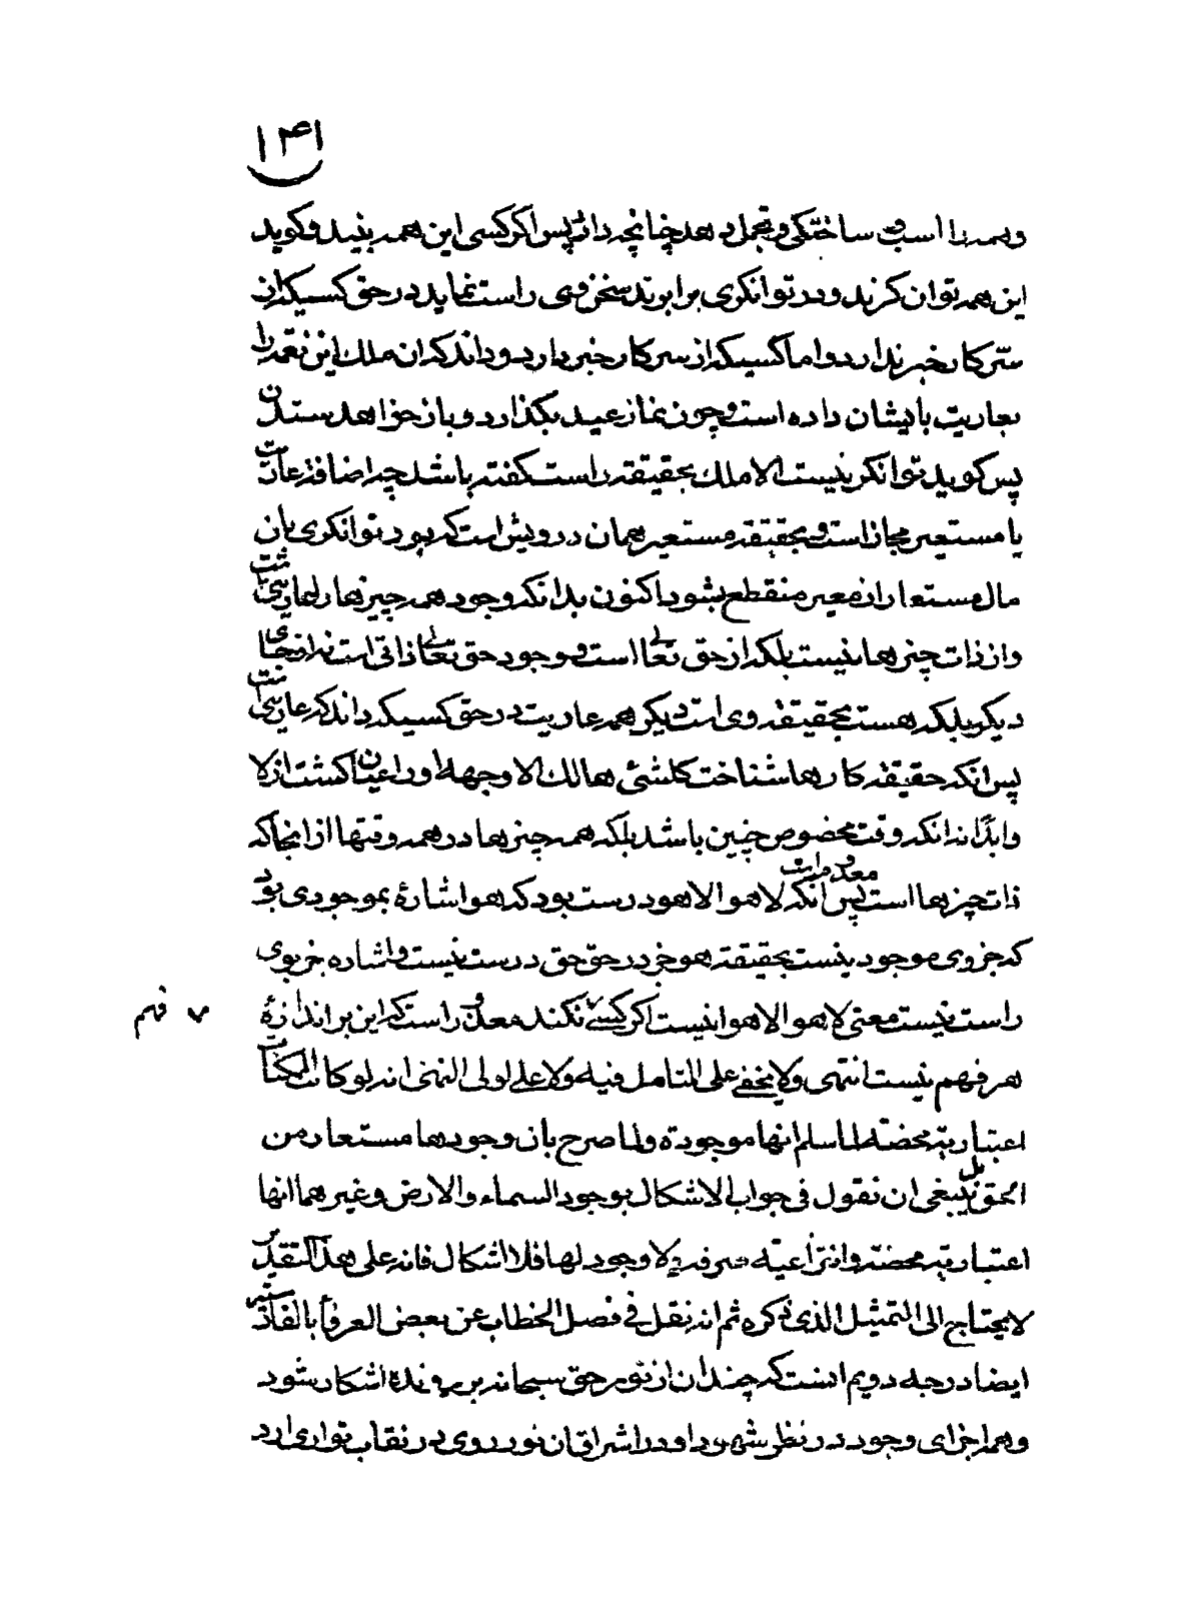 ۱۴۱
وهمه را اسب و ساختگی و تجمل دهد چنانچه دارند پس اگر کسی این همه ببیند و گوید
این همه توانگرند و در توانگری برابرند سخن وی راست نماید در حق کسیکه از
سر کار خبر ندارد و اما کسیکه از سر کار خبر دارد و داند که ان ملک این نعمه را
بعاریت بایشان داده است و چون نماز عید بگذارد و باز خواهد ستدن
پس گوید توانگر نیست الا ملک بحقیقه راست گفته باشد چه اضافه عاریت
با مستعیر مجاز است و بحقیقه مستعیر همان درویش است که بود توانگری بان
مال مستعار از معیر منقطع نشود اکنون بدانکه وجود همه چیزها را عاریتی است
و از ذات چیزها نیست بلکه از حق تعالی است و وجود حق تعالی ذاتی است نه از جای
دیگر بلکه هست بحقیقه وی است دیگر همه عاریت در حق کسیکه داند که عاریتی است
پس انکه حقیقه کارها شناخت کلشئ هالك الا وجهه او را عیان گشت ازلا
وابدا نه انکه وقت مخصوص چنین باشد بلکه همه چیزها در همه وقتها از انجا که
ذات چیزها است معدوم است پس انکه لا هو الا هو درست بود که هو اشارة بموجودی بود
که جز وی موجود نیست بحقیقة هو جز در حق حق درست نیست و اشاره جز بوی
راست نیست معنی لا هو الا هو اینست اگر کسی نکند معذور است که این بر اندازۀ
فهم
هر فهم نیست انتهی ولا یخفی علی المتامل فیه ولا علی اولی النهی انه لو کانت الممکنات
اعتباریة محضة لما سلم انها موجودة ولما صرح بان وجودها مستعار من
الحق بل ینبغی ان نقول فی جواب الاشکال بوجود السماء والارض وغیرهما انها
اعتباریة محضة وانتزاعیة صرفة لا وجود لها فلا اشکال فانه علی هذا التقدیر
لا یحتاج الی التمثیل الذی ذکره ثم انه نقل فی فصل الخطاب عن بعض العرفأ بالفارسیة
ایضا درجه دویم انست که چندان از نور حق سبحانه بر رونده اشکار شود
و همه اجزای وجود در نظر شهود او در اشراق ان نور روی در نقاب تواری ارد